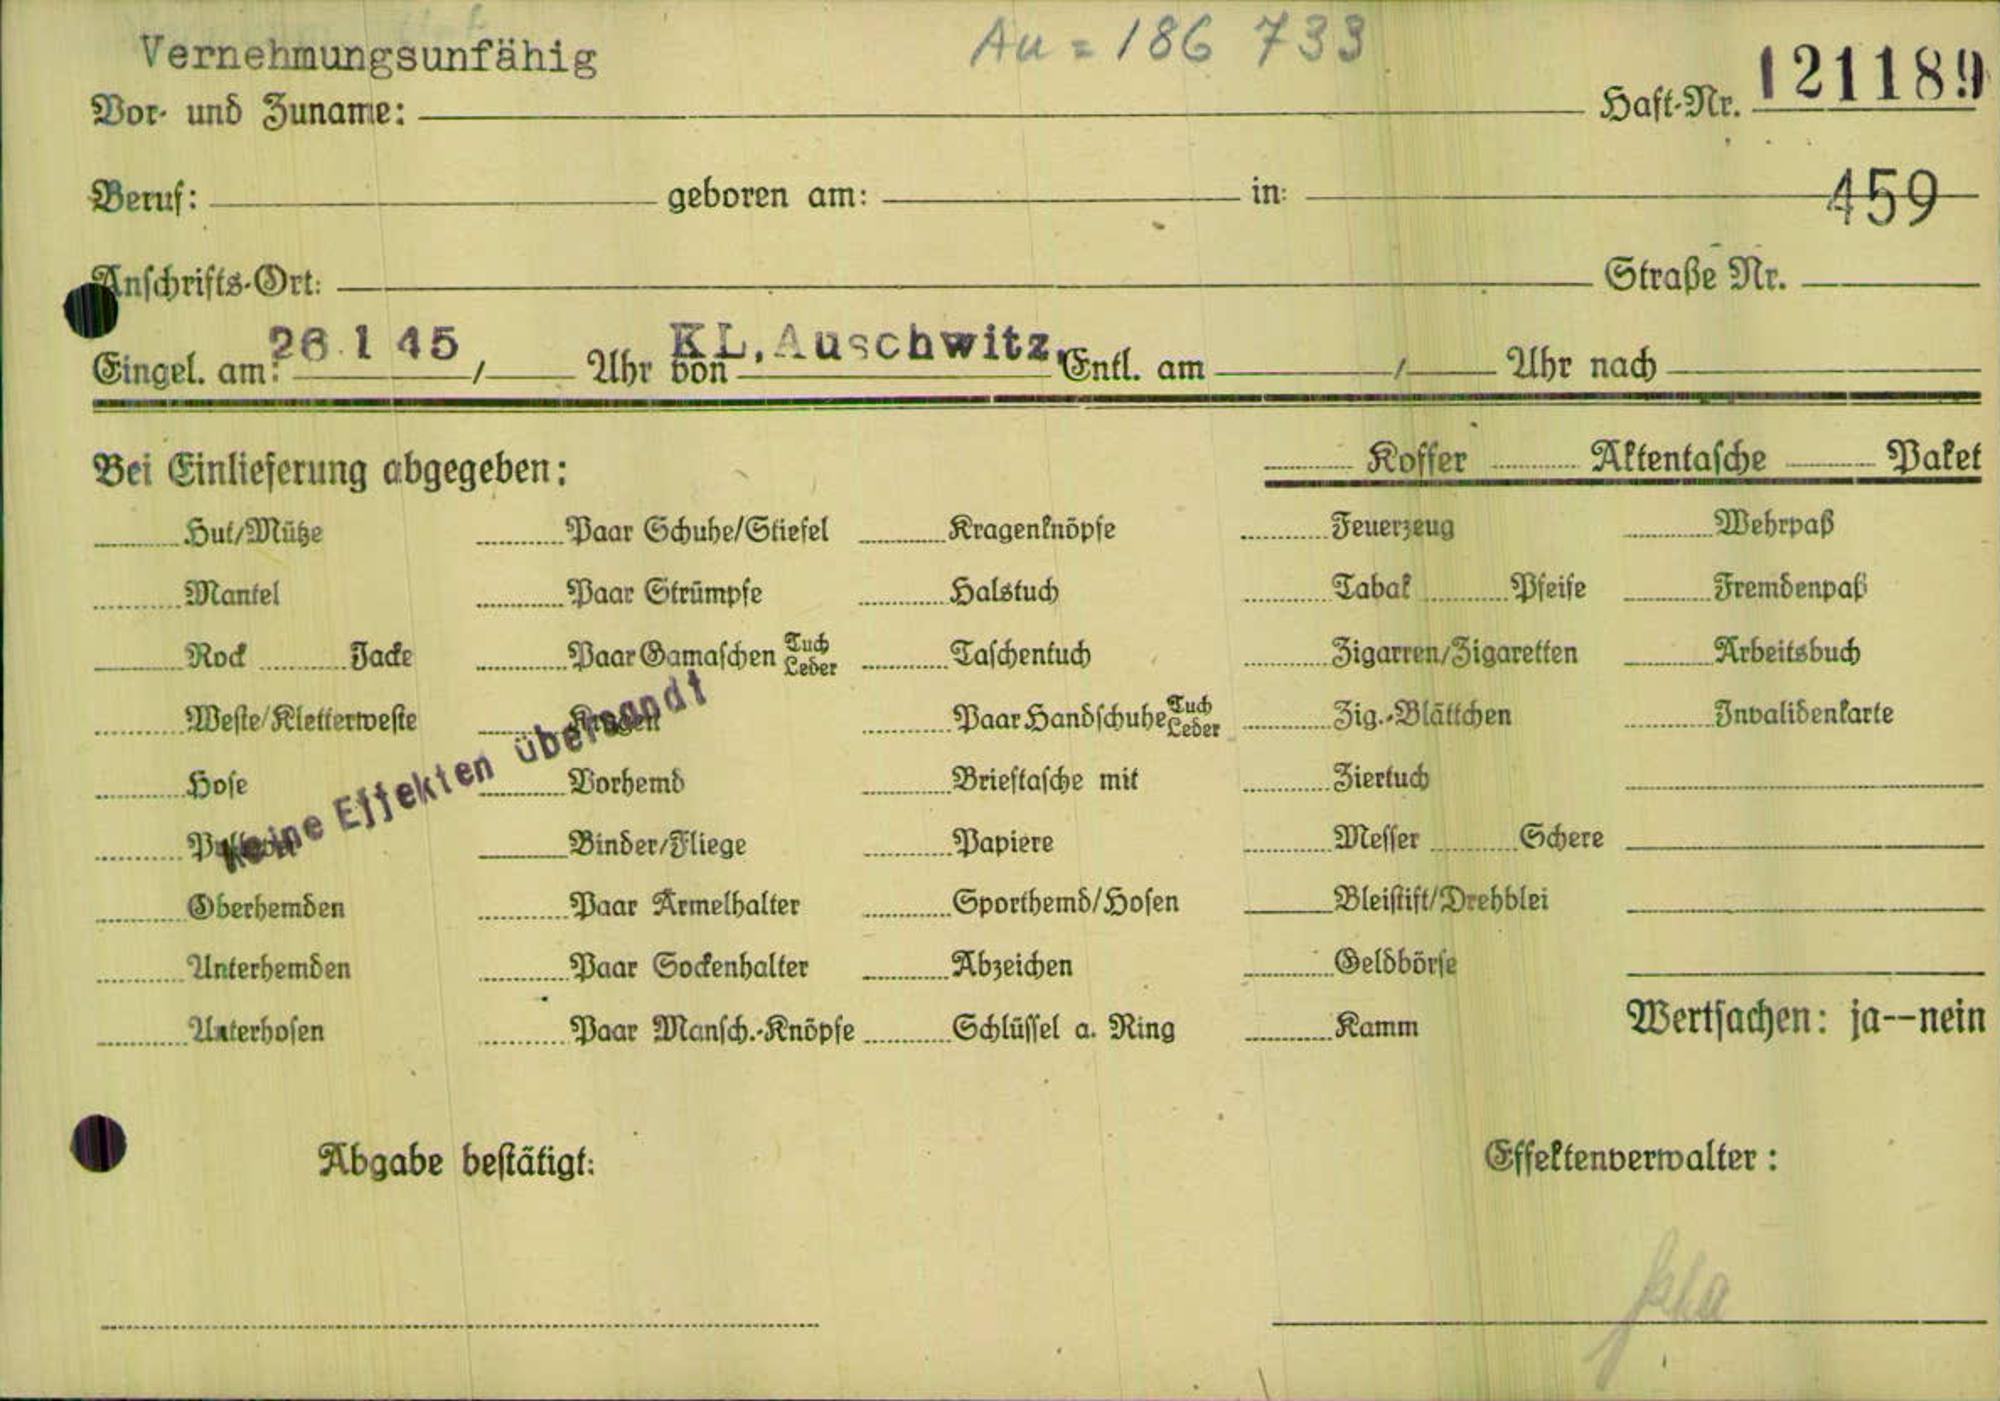 Vernehmungsunfähig
Au = 186 733
Vor- und Zuname: Haft-Nr. 121189
Beruf: geboren am: in: 459
Anschrifts-Ort: Straße Nr.
Eingel. am: 26 1 45 / Uhr von KL. Auschwitz. Entl. am / Uhr nach
Bei Einlieferung abgegeben: Koffer Aktentasche Paket
Hut/Mütze Paar Schuhe/Stiefel Kragenknöpfe Feuerzeug Wehrpaß
Mantel Paar Strümpfe Halstuch Tabak Pfeife Fremdenpaß
Rock Jacke Paar Gamaschen Tuch Leder Taschentuch Zigarren/Zigaretten Arbeitsbuch
Weste/Kletterweste Kragen Paar Handschuhe Tuch Leder Zig.-Blättchen Invalidenkarte
Hose Vorhemd Brieftasche mit Ziertuch
Keine Effekten übersandt
Binder/Fliege Papiere Messer Schere
Oberhemden Paar Ärmelhalter Sporthemd/Hosen Bleistift/Drehblei
Unterhemden Paar Sockenhalter Abzeichen Geldbörse
Unterhosen Paar Mansch.-Knöpfe Schlüssel a. Ring Kamm Wertsachen: ja--nein
Abgabe bestätigt: Effektenverwalter: